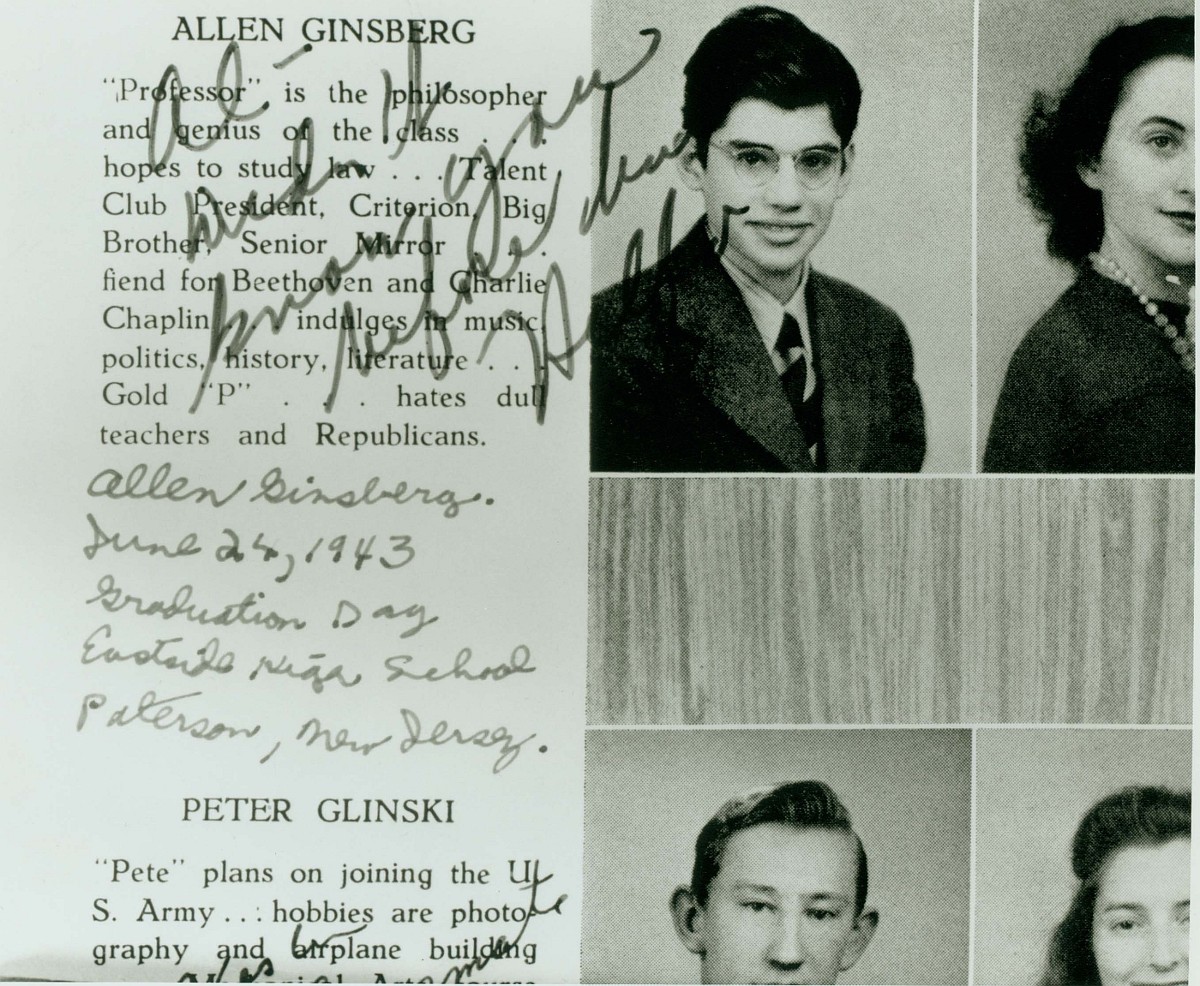 ALLEN GINSBERG
"Professor" is the philosopher
and genius of the class . . .
hopes to study law . . . Talent
Club President, Criterion, Big
Brother, Senior Mirror . . .
fiend for Beethoven and Charlie
Chaplin . . . indulges in music,
politics, history, literature . . .
Gold "P" . . . hates dull
teachers and Republicans.
Al -
you
Allen Ginsberg.
June 24, 1943
Graduation Day
Eastside High School
Paterson, New Jersey.
PETER GLINSKI
"Pete" plans on joining the U.
S. Army . . . hobbies are photo-
graphy and airplane building